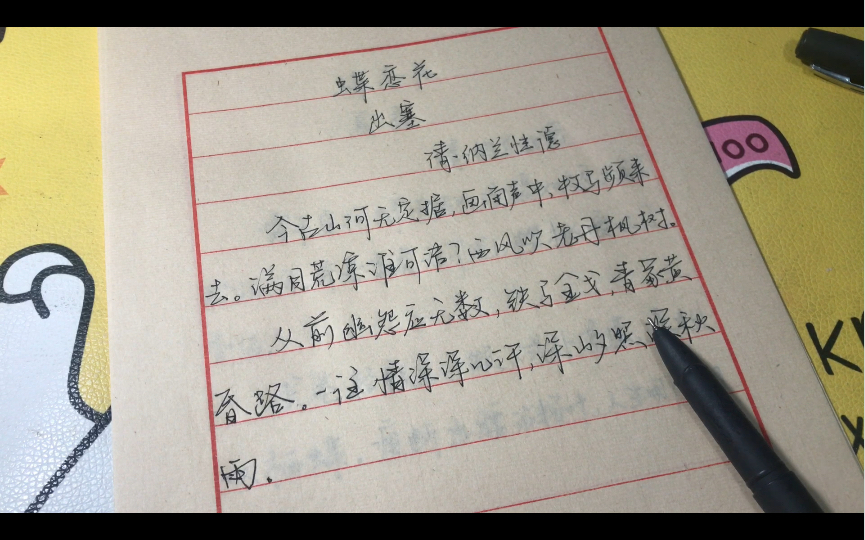 蝶恋花
出塞
清·纳兰性德
今古山河无定据,画角声中,牧马频来
去。满目荒凉谁可语?西风吹老丹枫树。
从前幽怨应无数,铁马金戈,青冢黄
昏路。一往情深深几许,深山夕照深秋
雨.
OO